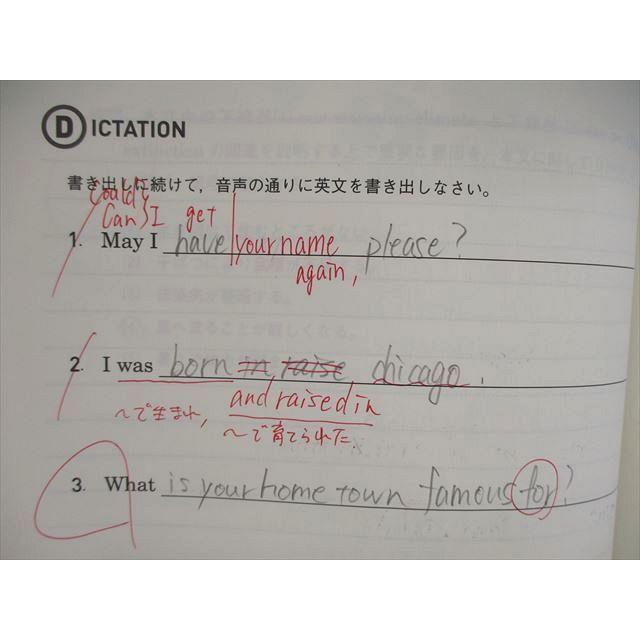 DICTATION
書き出しに続けて，音声の通りに英文を書き出しなさい。
Could
Can I get
1. May I have your name please?
again,
2. I was born in raise chicago.
and raised in
～で生まれ, ～で育てられた
3. What is your home town famous for?